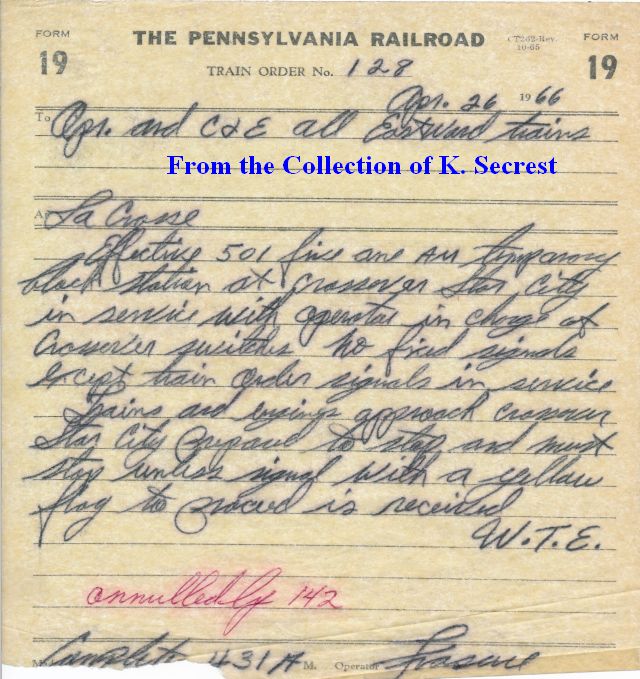 FORM 19 THE PENNSYLVANIA RAILROAD CT262-Rev. 10-65 FORM 19
TRAIN ORDER No. 128
Apr. 26 1966
To Opr. and C&E all Eastward trains
From the Collection of K. Secrest
At La Crosse
Effective 501 five one AM temporary
block station at crossover Star City
in service with operator in charge of
crossover switches no fixed signals
except train order signals in service
Trains and engines approach crossover
Star City prepared to stop and must
stop unless signal with a yellow
flag to proceed is received
W.T.E.
annulled by 142
Complete 431 A M. Operator